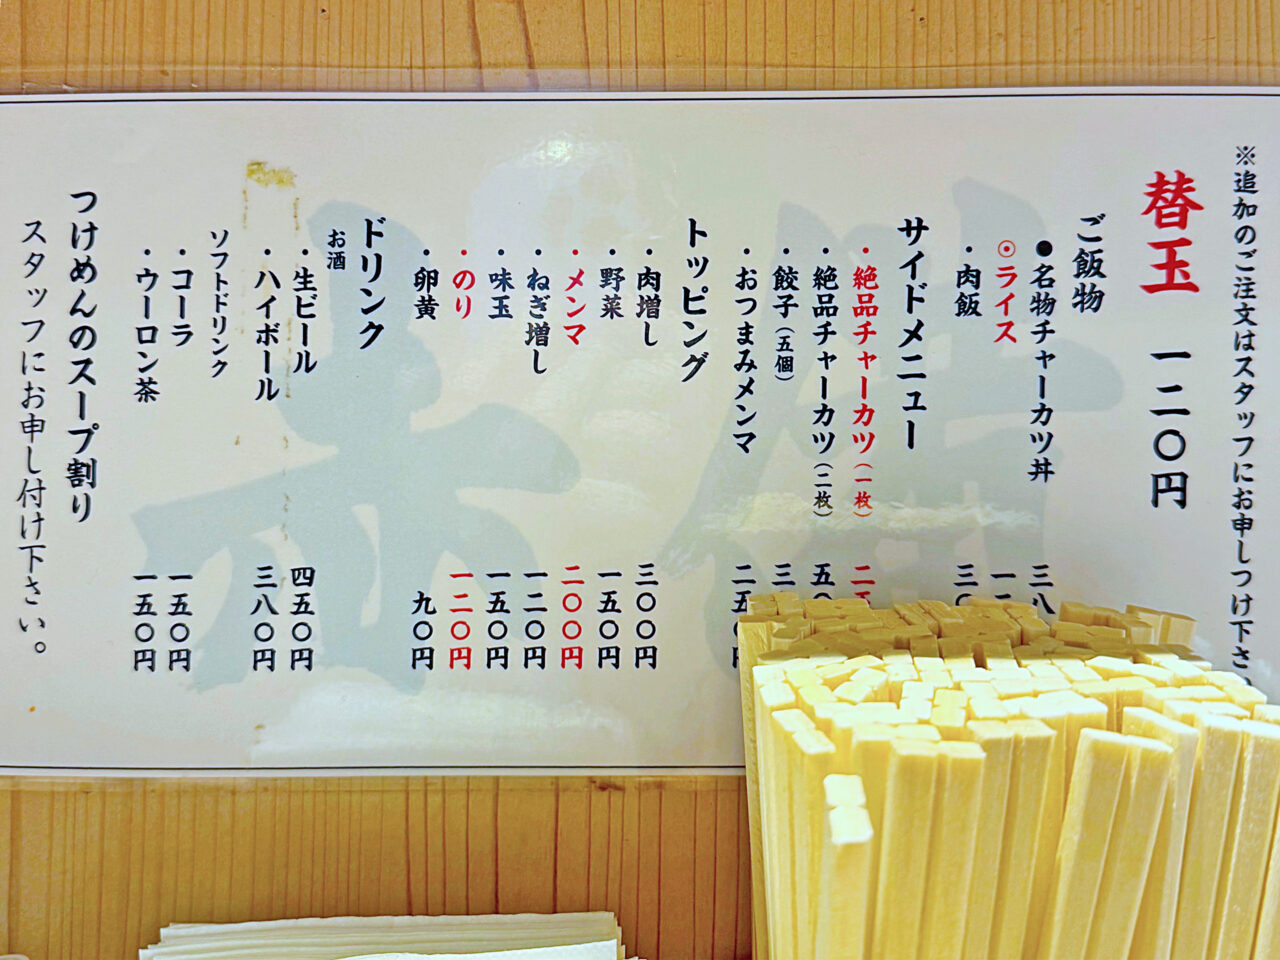 ※追加のご注文はスタッフにお申しつけ下さい
替玉 一二〇円
ご飯物
●名物チャーカツ丼 三八
◉ライス 一二
・肉飯 三〇
サイドメニュー
・絶品チャーカツ（一枚） 二五
・絶品チャーカツ（二枚） 五〇
・餃子（五個） 三
・おつまみメンマ 二五〇円
トッピング
・肉増し 三〇〇円
・野菜 一五〇円
・メンマ 二〇〇円
・ねぎ増し 一二〇円
・味玉 一五〇円
・のり 一二〇円
・卵黄 九〇円
ドリンク
お酒
・生ビール 四五〇円
・ハイボール 三八〇円
ソフトドリンク
・コーラ 一五〇円
・ウーロン茶 一五〇円
つけめんのスープ割り
スタッフにお申し付け下さい。